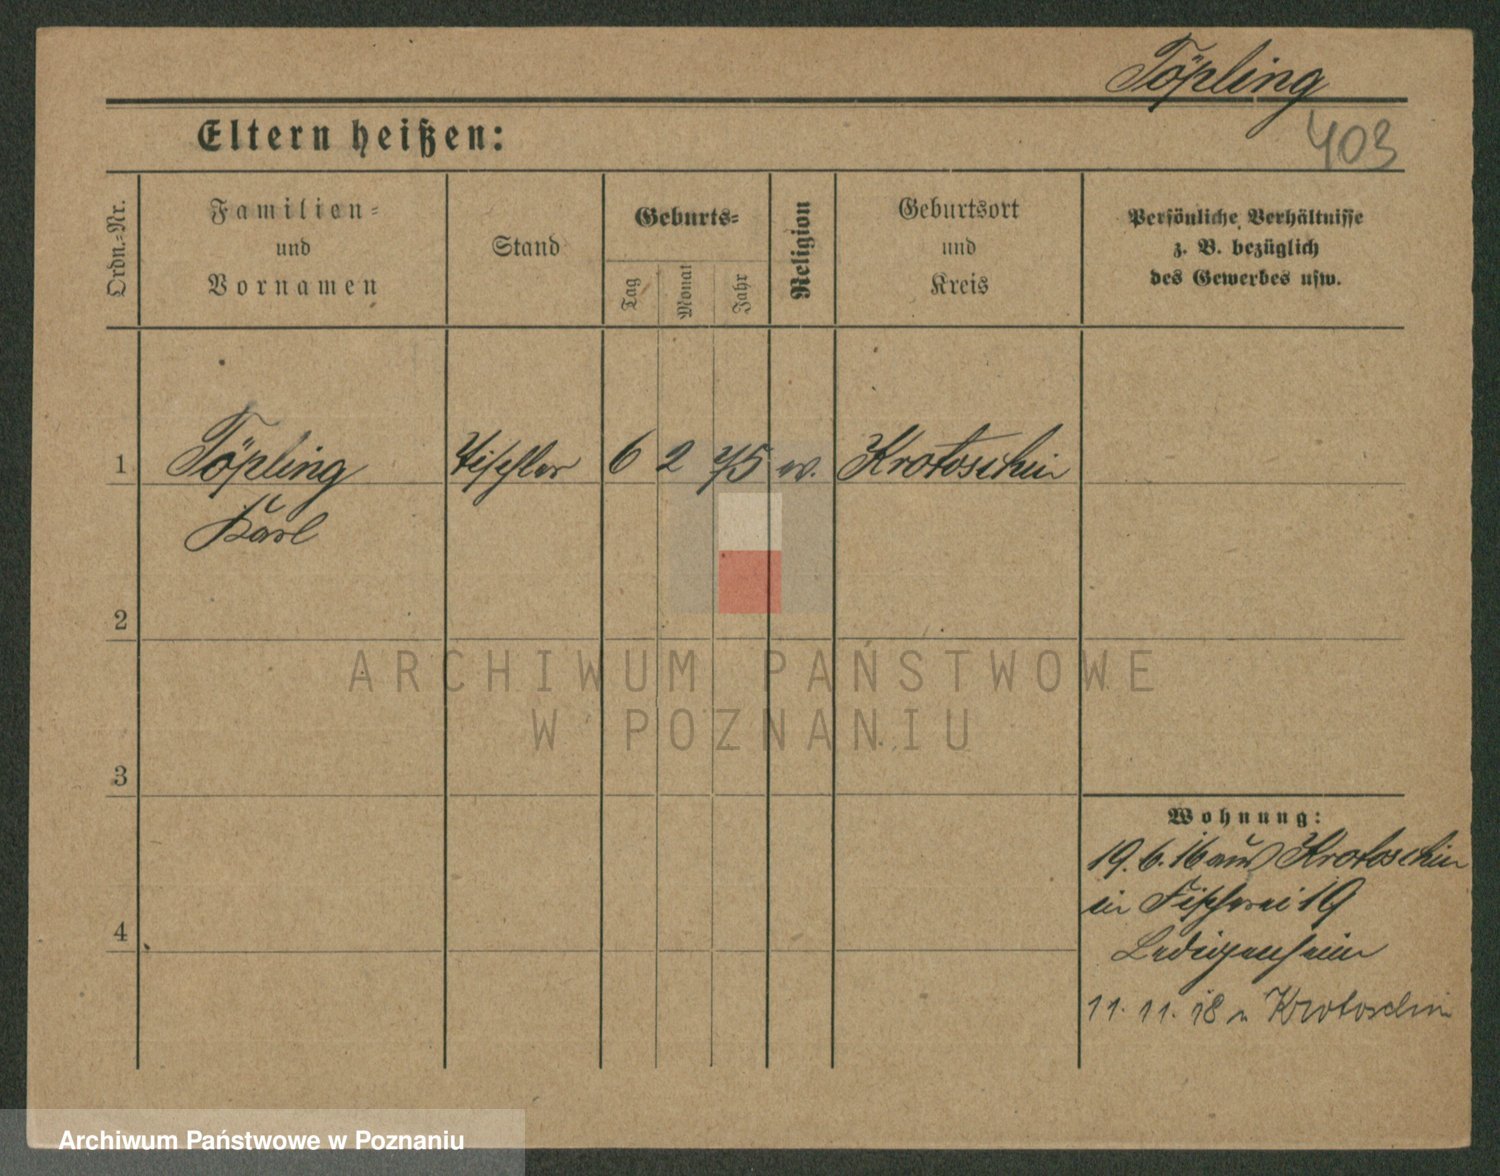 Töpling
403
Eltern heißen:
Ordn.-Nr.
Familien-
und
Vornamen
Stand
Geburts-
Tag
Monat
Jahr
Religion
Geburtsort
und
Kreis
Persönliche Verhältnisse
z. B. bezüglich
des Gewerbes usw.
1 Töpling Tischler 6 2 75 ev. Krotoschin
Karl
2
ARCHIWUM PAŃSTWOWE
W POZNANIU
3
Wohnung:
19.6.16 aus Krotoschin
in Fischerei 19
4
Ledigenheim
11.11.18 n Krotoschin
Archiwum Państwowe w Poznaniu